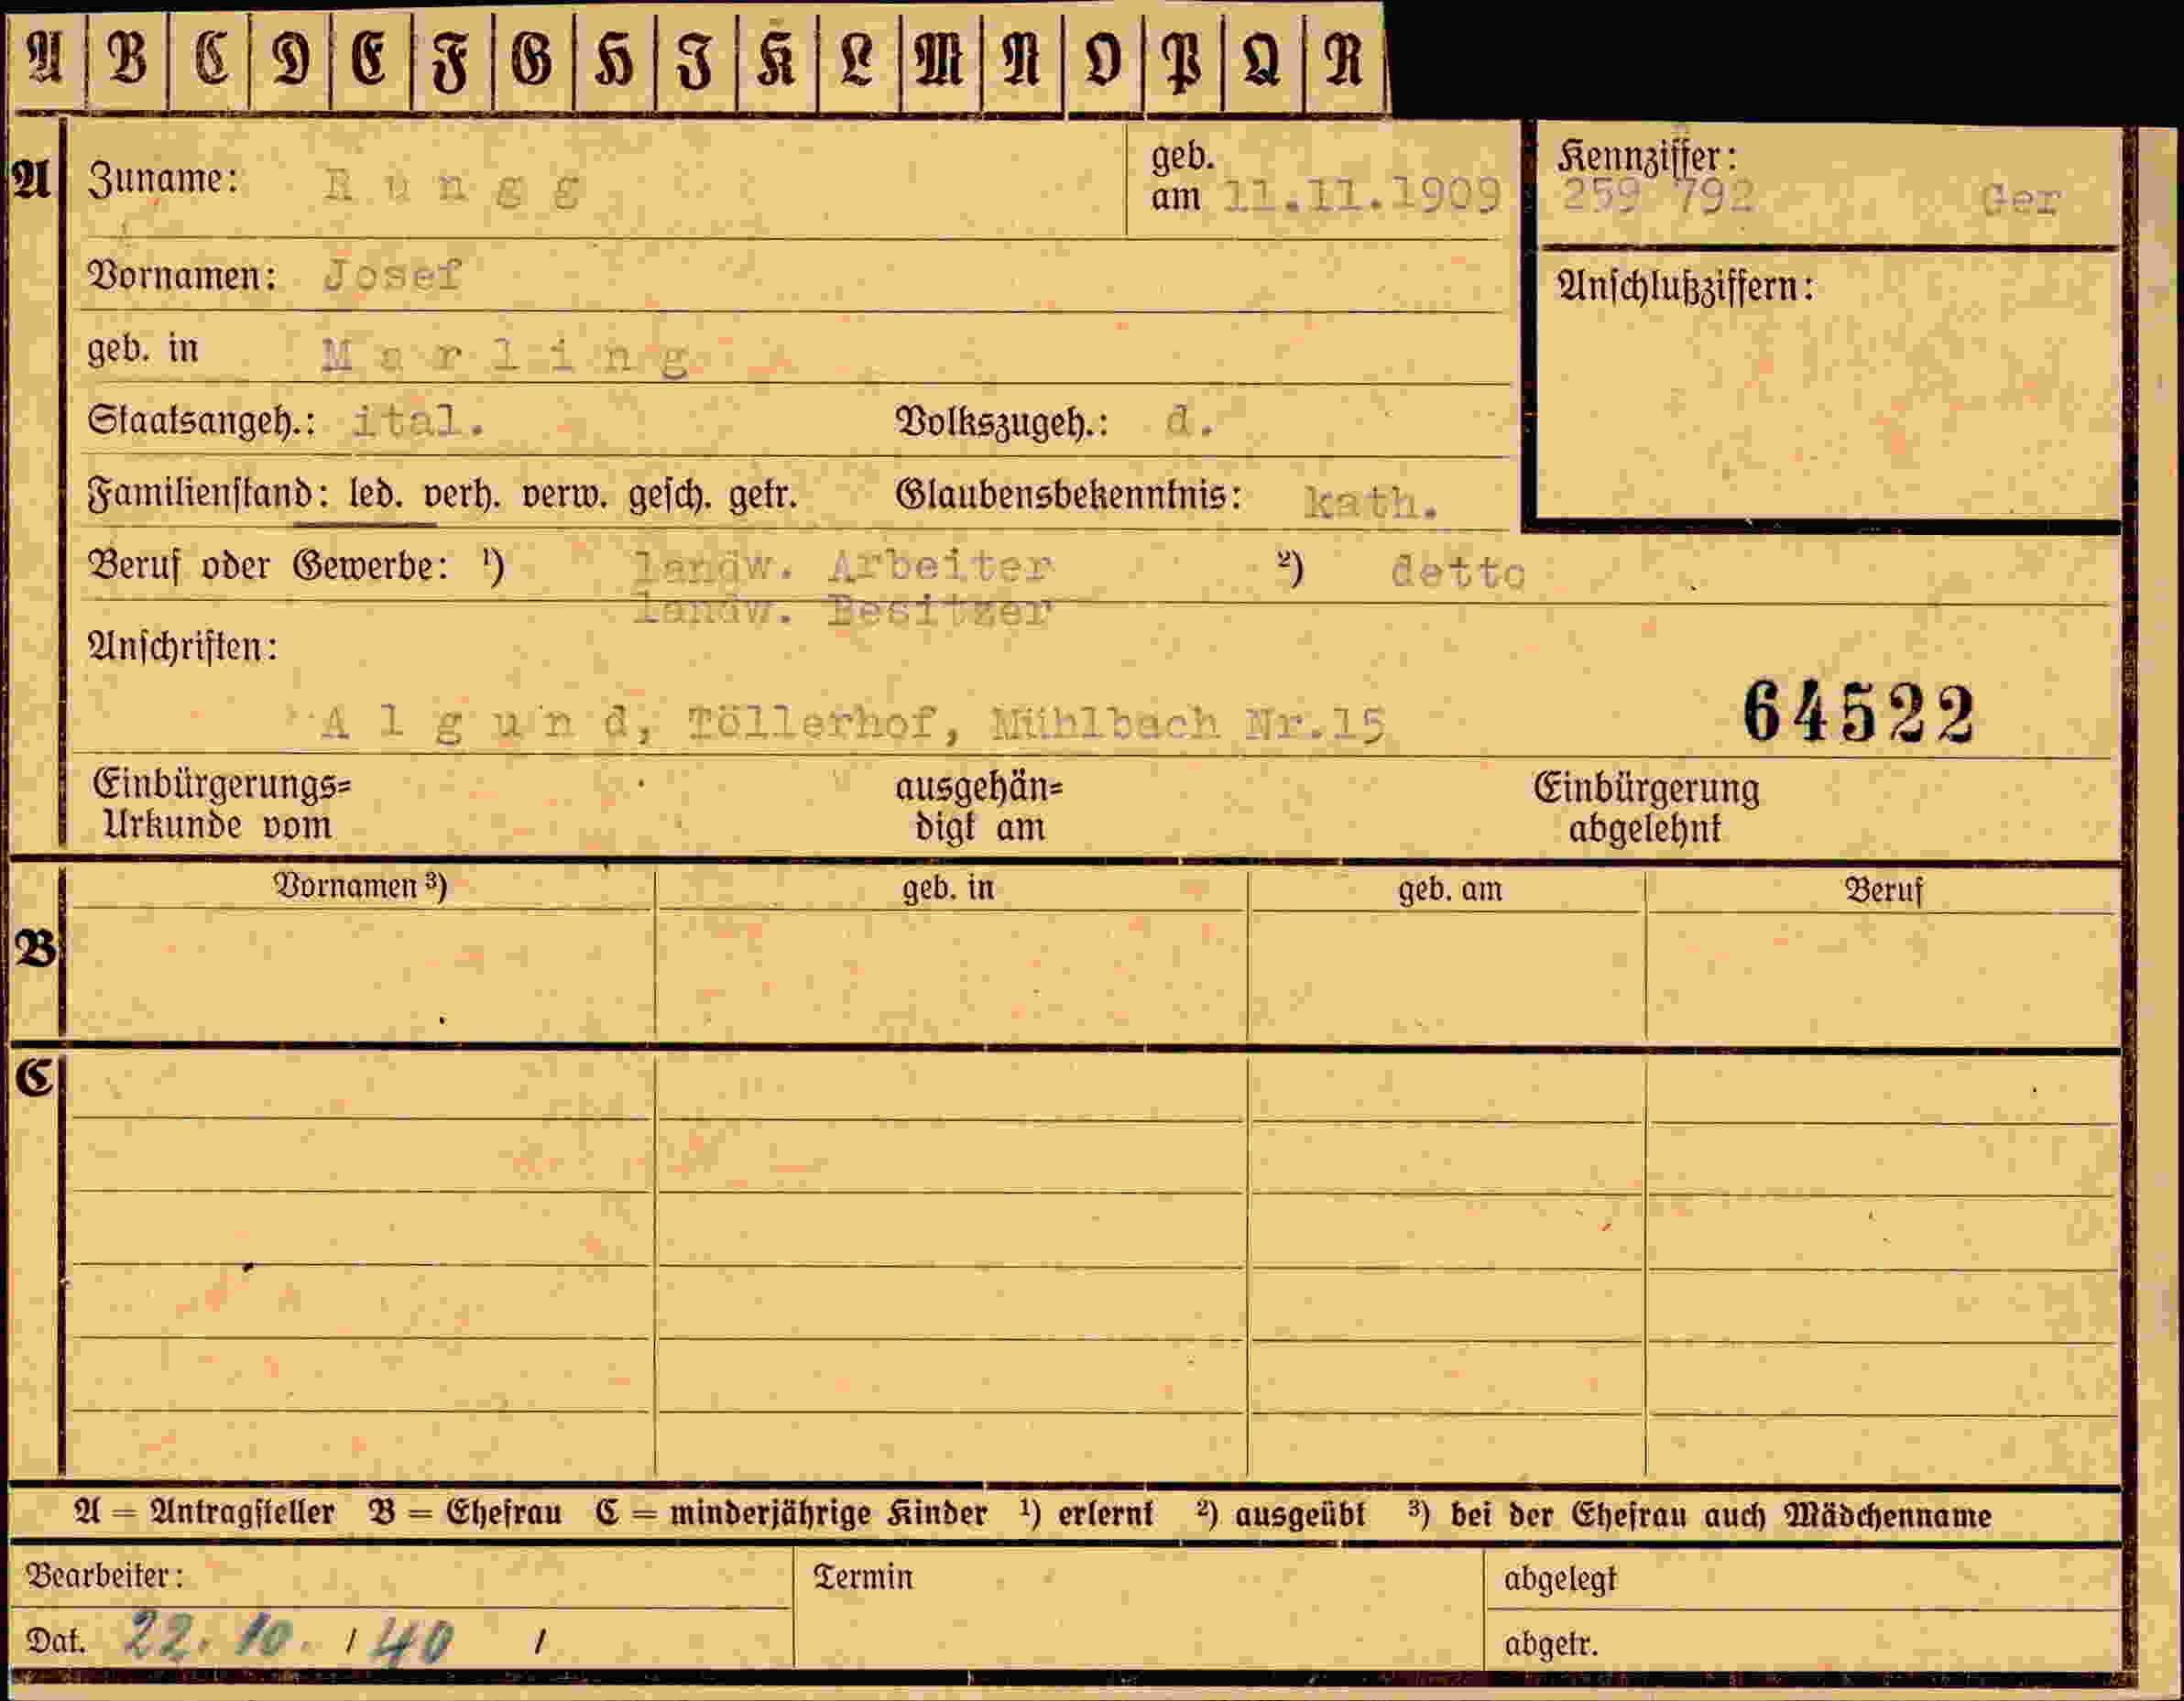 A B C D E F G H I K L M N O P Q R
A Zuname: Rungg geb. am 11.11.1909 Kennziffer: 259 792 Ger
Vornamen: Josef Anschlußziffern:
geb. in Marling
Staatsangeh.: ital. Volkszugeh.: d.
Familienstand: led. verh. verw. gesch. getr. Glaubensbekenntnis: kath.
Beruf oder Gewerbe: ¹) landw. Arbeiter ²) detto
landw. Besitzer
Anschriften:
Algund, Töllerhof, Mühlbach Nr.15 64522
Einbürgerungs= ausgehän= Einbürgerung
Urkunde vom digt am abgelehnt
Vornamen ³) geb. in geb. am Beruf
B
C
A = Antragsteller B = Ehefrau C = minderjährige Kinder ¹) erlernt ²) ausgeübt ³) bei der Ehefrau auch Mädchenname
Bearbeiter: Termin abgelegt
Dat. 22.10. / 40 / abgetr.